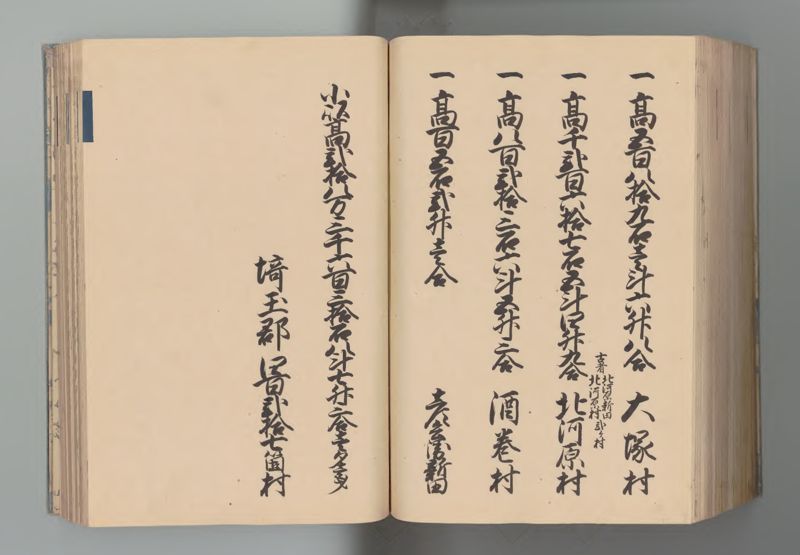 一高五百八拾九石壱斗六升八合 大塚村
一高千弐百六拾七石五斗四升九合 北河原村
古者 北河原新田
北河原村 弐ケ村
一高八百弐拾三石六斗五升三合 酒巻村
一高百五石弐升壱合 新田
小以高弐拾八万三千六百三拾石八斗七升三合
埼玉郡 四百弐拾七箇村